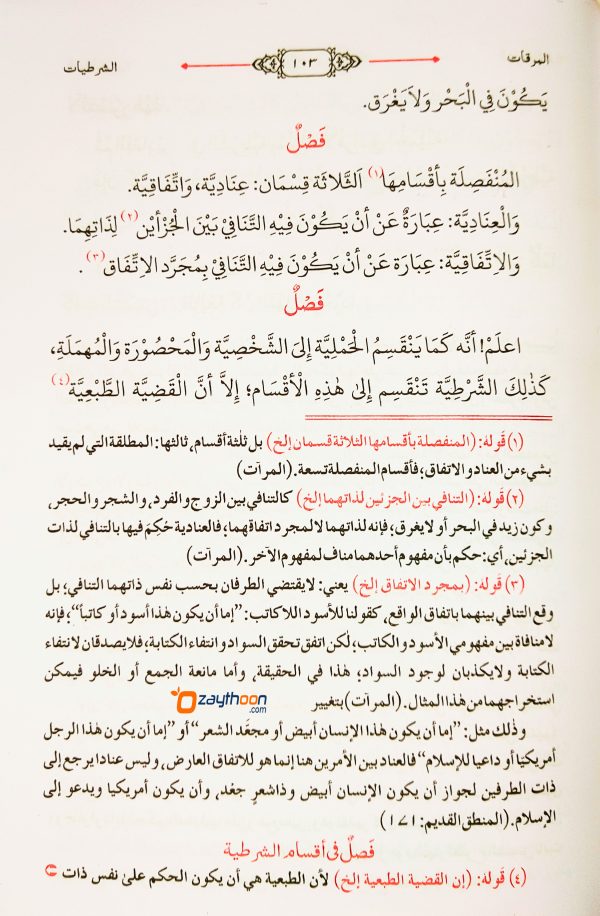 المرقات ١٠٣ الشرطيات
يَكُوْنَ فِي الْبَحْرِ وَلاَ يَغْرَق.
فَصْلٌ
المُنْفَصِلَة بِأَقْسَامِهَا(١) اَلثَّلاثَة قِسْمَان: عِنَادِيَّة، وَاتِّفَاقِيَّة.
وَالْعِنَادِيَّة: عِبَارَةٌ عَنْ أَنْ يَكُوْنَ فِيْهِ التَّنَافِيْ بَيْنَ الْجُزْأَيْن(٢) لِذَاتِهِمَا.
وَالاِتِّفَاقِيَّة: عِبَارَة عَنْ أَنْ يَكُوْنَ فِيْهِ التَّنَافِيْ بِمُجَرَّد الاِتِّفَاق(٣).
فَصْلٌ
اعلَمْ! أنَّه كَمَا يَنْقَسِمُ الْحَمْلِيَّة إِلىَ الشَّخْصِيَّة وَالْمَحْصُوْرَة وَالْمُهمَلَةِ،
كَذٰلِكَ الشَّرْطِيَّة تَنْقَسِم إِلىٰ هٰذِهِ الْأَقْسَام؛ إِلاَّ أنَّ الْقَضِيَّة الطَّبْعِيَّة(٤)
(١) قوله: (المنفصلة بأقسامها الثلاثة قسمان إلخ) بل ثلٰثة أقسام، ثالثها: المطلقة التي لم يقيد
بشيء من العناد والاتفاق؛ فأقسام المنفصلة تسعة. (المرآت)
(٢) قوله: (التنافي بين الجزئين لذاتهما إلخ) كالتنافي بين الزوج والفرد، والشجر والحجر،
وكون زيد في البحر أو لا يغرق؛ فإنه لذاتهما لا لمجرد اتفاقهما؛ فالعنادية حُكِمَ فيها بالتنافي لذات
الجزئين، أي: حكم بأن مفهوم أحدهما مناف لمفهوم الآخر. (المرآت)
(٣) قوله: (بمجرد الاتفاق إلخ) يعني: لا يقتضي الطرفان بحسب نفس ذاتهما التنافي؛ بل
وقع التنافي بينهما باتفاق الواقع، كقولنا للأسود اللاكاتب: "إما أن يكون هٰذا أسود أو كاتباً"؛ فإنه
لا منافاة بين مفهومي الأسود والكاتب؛ لٰكن اتفق تحقق السواد وانتفاء الكتابة؛ فلا يصدقان لانتفاء
الكتابة ولا يكذبان لوجود السواد؛ هٰذا في الحقيقة، وأما مانعة الجمع أو الخلو فيمكن
استخراجهما من هٰذا المثال. (المرآت) بتغيير
zaythoon.com
وذلك مثل: "إما أن يكون هٰذا الإنسان أبيض أو مجعَّد الشعر" أو "إما أن يكون هٰذا الرجل
أمريكيا أو داعيا للإسلام" فالعناد بين الأمرين هنا إنما هو للاتفاق العارض، وليس عنادا يرجع إلى
ذات الطرفين لجواز أن يكون الإنسان أبيض وذا شعرٍ جعْد، وأن يكون أمريكيا ويدعو إلى
الإسلام. (المنطق القديم: ١٧١)
فَصلٌ في أقسام الشرطية
(٤) قوله: (إن القضية الطبعية إلخ) لأن الطبعية هي أن يكون الحكم علىٰ نفس ذات